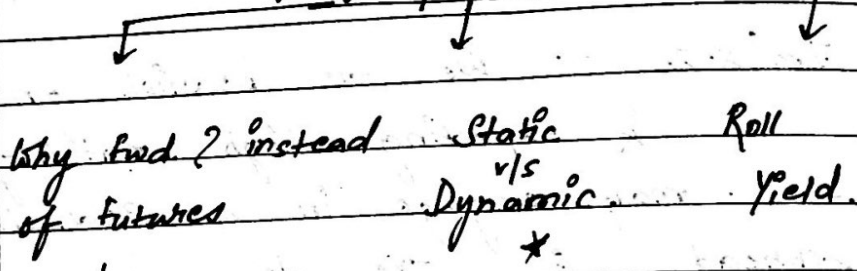 Why fwd ? instead
of futures
Static
v/s
Dynamic
*
Roll
Yield.